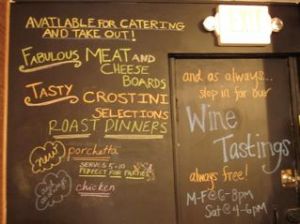 AVAILABLE FOR CATERING
AND TAKE OUT!
FABULOUS MEAT AND
CHEESE
BOARDS
TASTY CROSTINI
SELECTIONS
ROAST DINNERS
new! porchetta
SERVES 8-10
PERFECT FOR PARTIES
chicken
EXIT
and as always...
stop in for our
Wine
Tastings
always free!
M-F@6-8pm
Sat@4-6pm